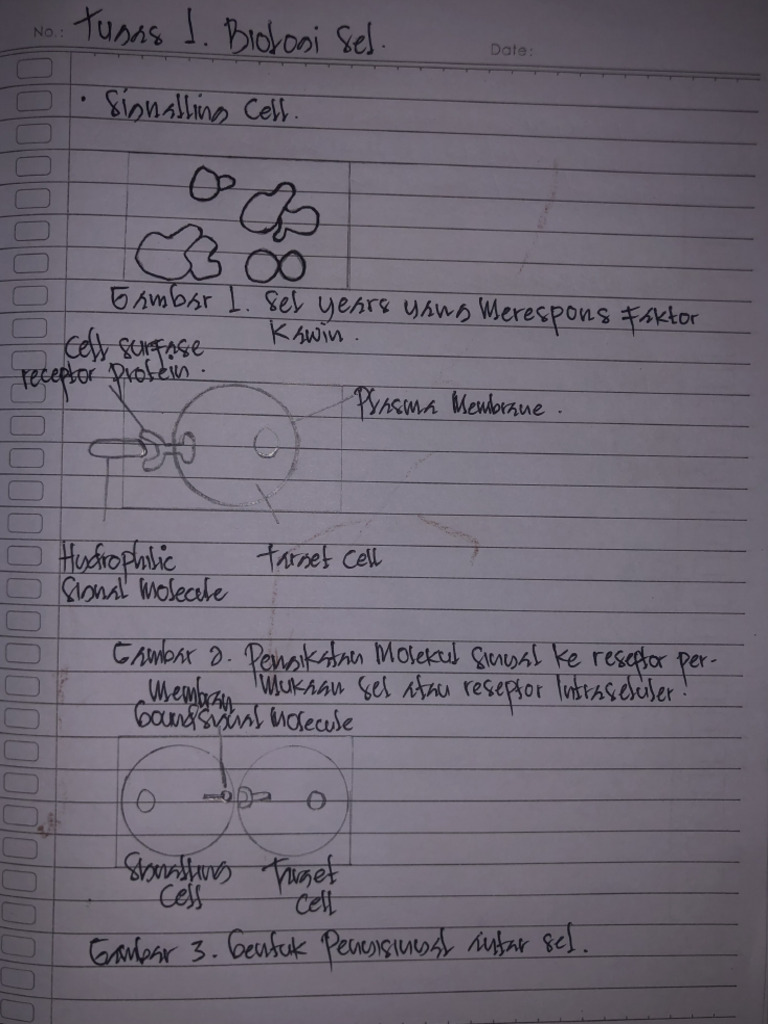 No.: Tugas 1. Biologi Sel.
Date:
• Signalling Cell.
Gambar 1. Sel years yang Merespons Faktor
Kawin.
Cell surfase
receptor Protein.
Plasma Membrane.
Hydrophilic
Signal Molecule
Target Cell
Gambar 2. Pengikatan Molekul sinyal ke reseptor per-
mukaan sel atau reseptor Intraseluler.
Membran
bound signal Molecule
Signalling
Cell
Target
Cell
Gambar 3. Bentuk Pensinyal antar sel.